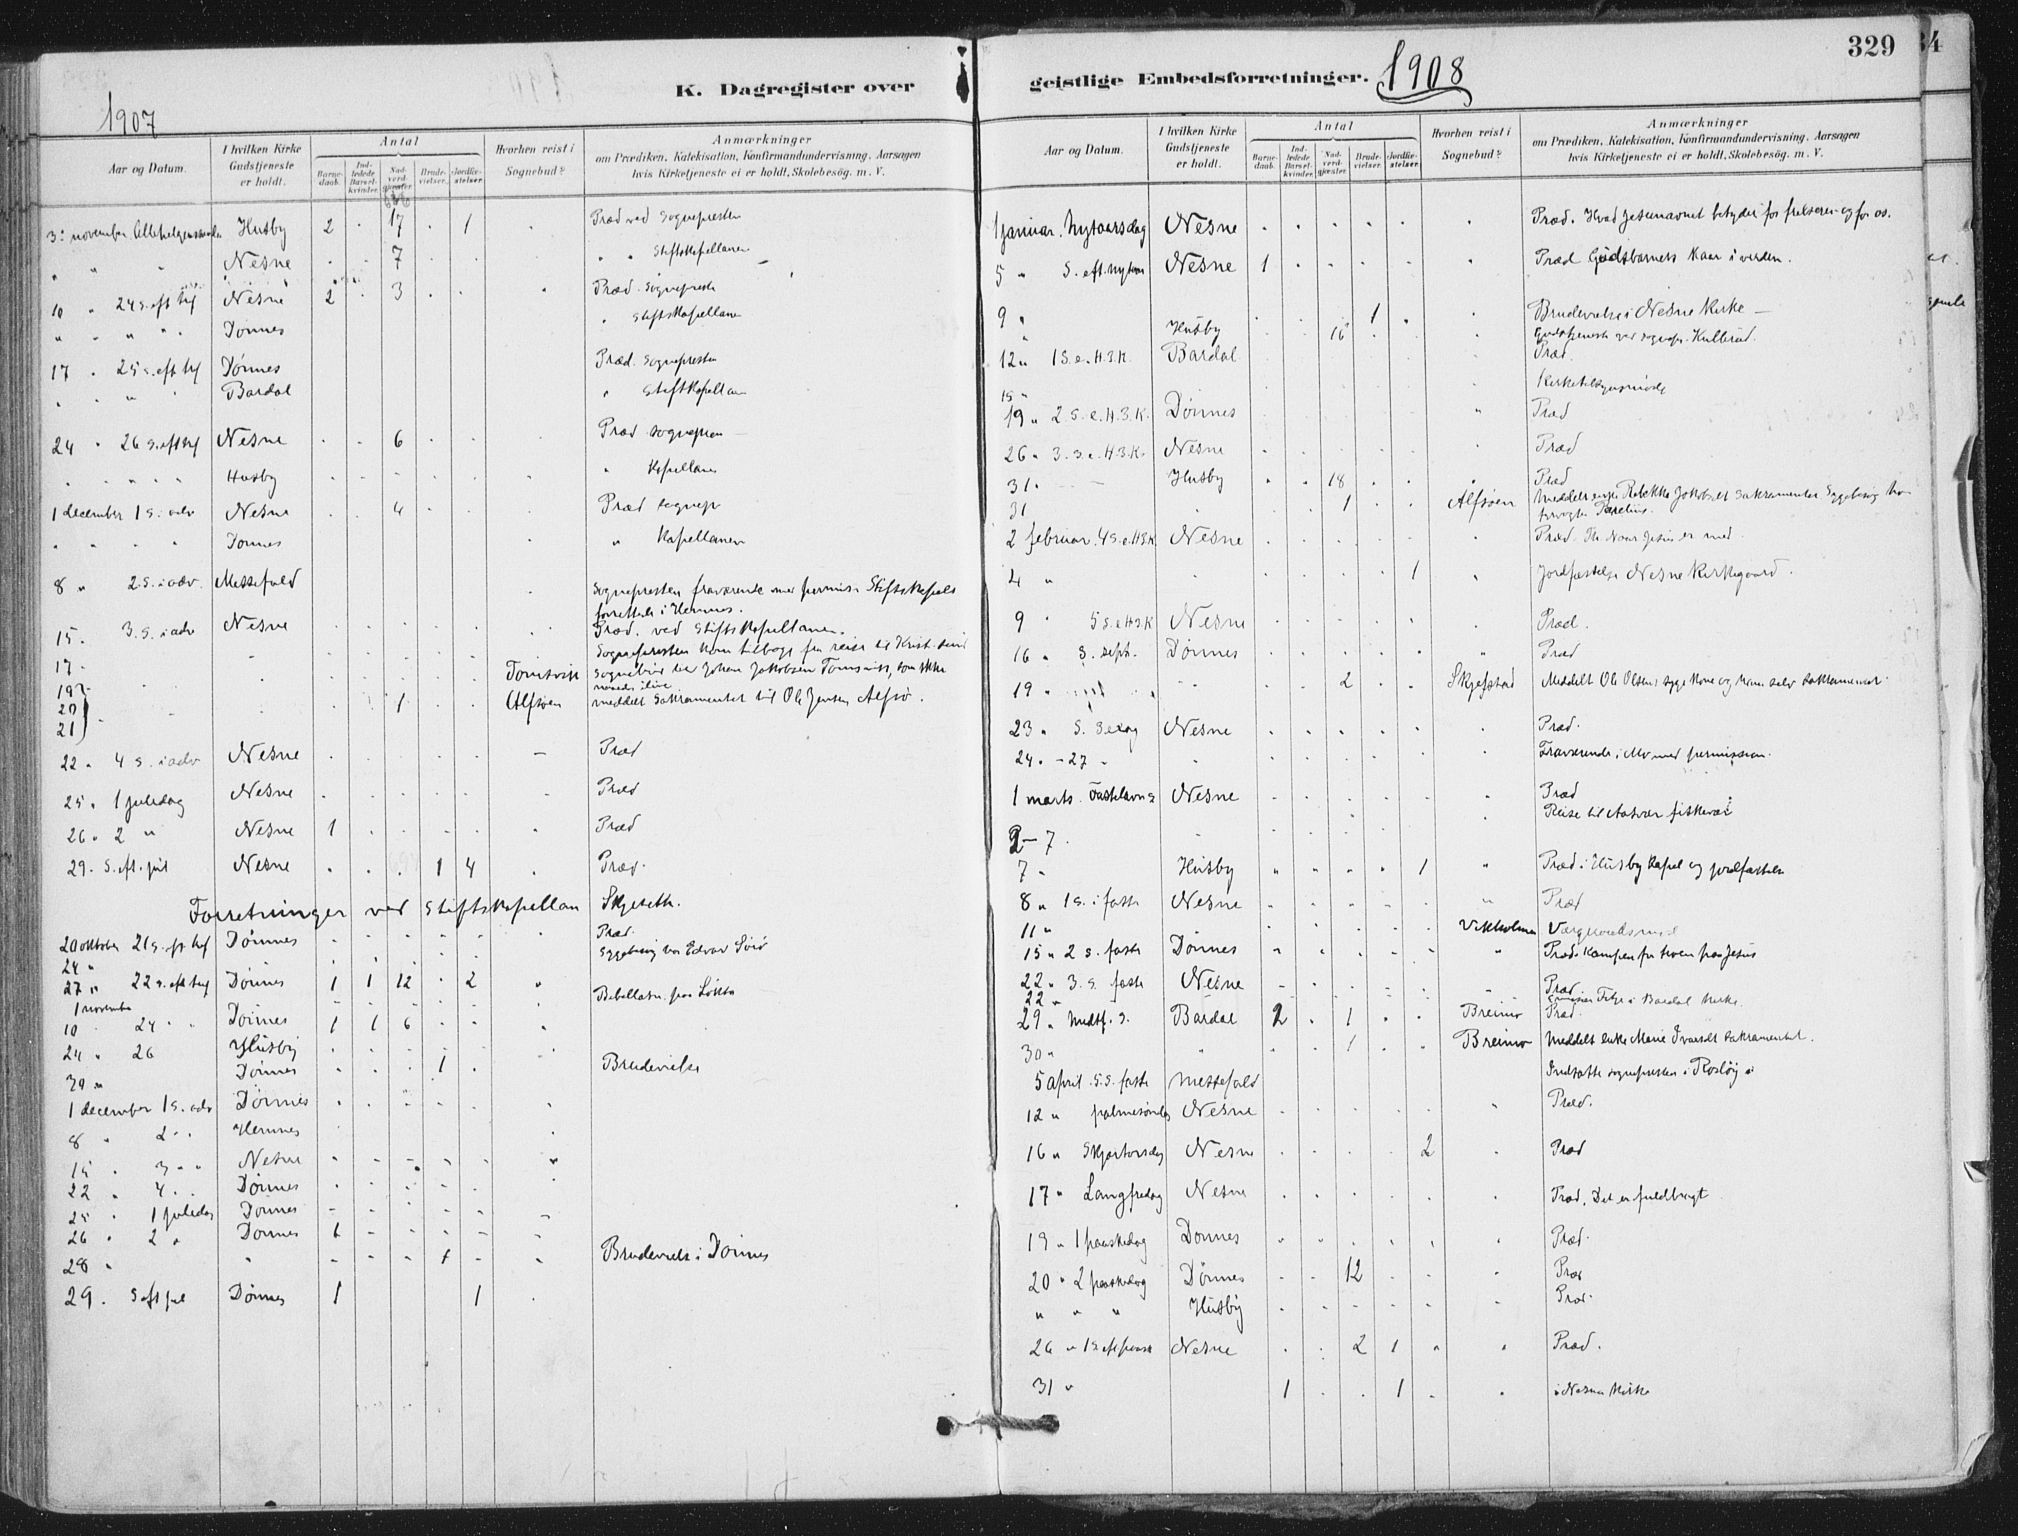 1907
K. Dagregister over
Aar og Datum.
I hvilken Kirke Gudstjeneste er holdt.
Antal
Barnedaab.
Indledede Barselkvinder.
Nadverdgjæster.
Brudevielser.
Jordfæstelser.
Hvorhen reist i Sognebud?
Anmærkninger
om Prædiken, Katekisation, Konfirmandundervisning, Aarsagen
hvis Kirketjeneste ei er holdt, Skolebesög. m. V.
3: november Allehelgens Husby 2 . 17 . 1 Præd ved Sognepresten
" " " Nesne . . 7 " " Stiftskapellanen
10 " 24 s. eft tref Nesne 2 . 3 . . Præd. Sognepresten
" " " " Dønnes " Stiftskapellanen
17 " 25 s. eft tref Dønnes Præd. Sognepresten
" " " " Bardal " Stiftskapellanen
24 " 26 s. eft tref Nesne . . 6 . . Præd
" " " " Husby " Kapellanen
1 december 1 s. i adv Nesne . . 4 . . Præd sognepr
" " " " Dønnes " Kapellanen
8 " 2 s. i adv. Messefald Sognepresten fraværende med permiss. Stiftskapel
forrettede i Hemnes.
15. 3. s. i adv Nesne Præd. ved Stiftskapellanen.
17. Sognepresten kom tilbage fra reise til
19 Tomsvik Sognebud til Johan Jakobsen
20 Alfsøen meddelt Sakramentet til Ole Jensen Alfsø.
21
22. 4 s. i adv Nesne Præd
25. 1 juledag Nesne Præd
26. 2 " Nesne 1 Præd
29. s. eft. jul Nesne . . . 1 4 Præd.
Forretninger ved Stiftskapellan Skjeseth.
20 oktober 21 s. eft tref Dønnes Præd.
24 "
27 " 22 s. eft tref Dønnes 1 1 12 . 2
1 november Bibellæsn. paa Løkta
10 24 " " Dønnes 1 1 6
24 " 26 Husby
30 " Dønnes . . . 1 . Brudevielse
1 december 1 s. adv Dønnes
8 " 2 " " Hemnes
15 " 3 " " Nesne
22 " 4 " . Dønnes
25 " 1 juledag Dønnes
26 " 2 " Dønnes 1
28 " " . . . 1 Brudevielse i Dønnes
29. s eft jul Dønnes 1 1
geistlige Embedsforretninger.
1908
329
34
Aar og Datum.
I hvilken Kirke Gudstjeneste er holdt.
Antal
Barnedaab.
Indledede Barselkvinder.
Nadverdgjæster.
Brudevielser.
Jordfæstelser.
Hvorhen reist i Sognebud?
Anmærkninger
om Prædiken, Katekisation, Konfirmandundervisning, Aarsagen
hvis Kirketjeneste ei er holdt, Skolebesög. m. V.
1 januar. Nytaarsdag Nesne Præd. Hvad Jesunavnet betyder for frelseren og for os.
5 " S. eft. nytaar Nesne 1 Præd Gudsbarnets kaar i verden.
9 " 1 Brudevielse i Nesne Kirke —
" Husby 16 Gudstjeneste ved sognepr. Kulbrud.
12 " 1 S. e. H.3.K. Bardal Præd.
15 "
19 " 2. S. e. H.3.K. Dønnes Præd
26 " 3. s. e. H.3.K. Nesne Præd
31 " Husby . . 18 Præd
31 1 Alfsøen
2 februar. 4 S. e. H3K Nesne Præd. Th. Naar Jesus er med.
4 " 1 Jordfæstelse Nesne Kirkegaard.
9 " 5 S. e H3K Nesne Præd.
16 " S. sept. Dønnes Præd
19 " 2 Meddelt Ole Olsens syge kone og ham selv sakramentet.
23 " S. Sexag Nesne Præd.
24 " - 27 " Fraværende i Mo med permission.
1 marts. Fastelavns Nesne Præd
2 - 7. Reise til Aasvær fiskevær
7 " Husby 1 Præd. i Husby Kapel og jordfæstelse
8 " 1 S. i faste Nesne Præd
11 " Vikholmen
15 " 2 s. faste Dønnes Præd. Kampen for troen paa Jesus
22 " 3. s. faste Nesne Præd
22 "
29 " Midtf. s. Bardal 2 . 1 Breimo Præd.
30 " 1 Breimo Meddelt enke Marie sakramentet.
5 april. 5. s. faste Messefald Indsatte sognepresten i Rødøy
12 " palmesøndag Nesne Præd.
16 " Skjærtorsdag Nesne 2 Præd
17 " Langfredag Nesne Præd. Det er fuldbragt
19 " 1 paaskedag Dønnes Præd.
20 " 2 paaskedag Dønnes . . 12 Præd
" " " Husby Præd.
26 " 1 S. eft paask Nesne . . 2 1 Præd.
31 " 1 . . 1 i Nesne Kirke